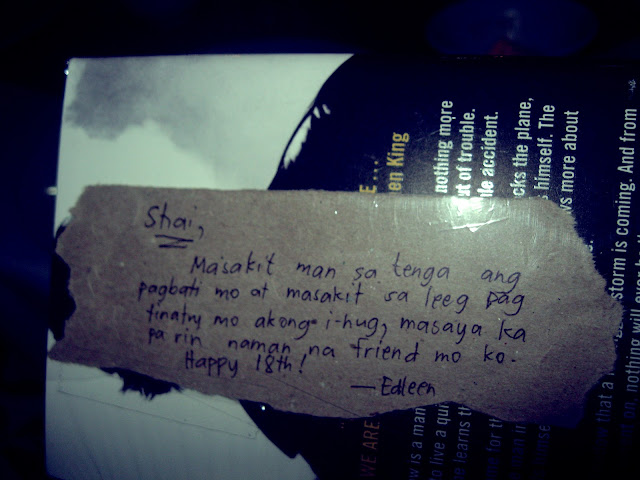 Shai,
Masakit man sa tenga ang
pagbati mo at masakit sa leeg pag
tinatry mo akong i-hug, masaya ka
pa rin naman na friend mo ko.
Happy 18th!
—Edleen
E....
en King
nothing more
ut of trouble.
le accident.
cks the plane,
himself. The
ws more about
storm is coming. And from
WE ARE
w is a man
to live a qui
e learns th